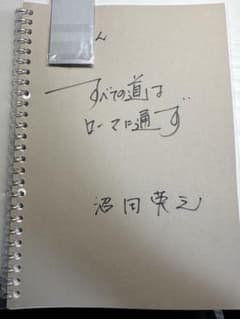 ん
すべての道は
ローマに通ず
沼田英之